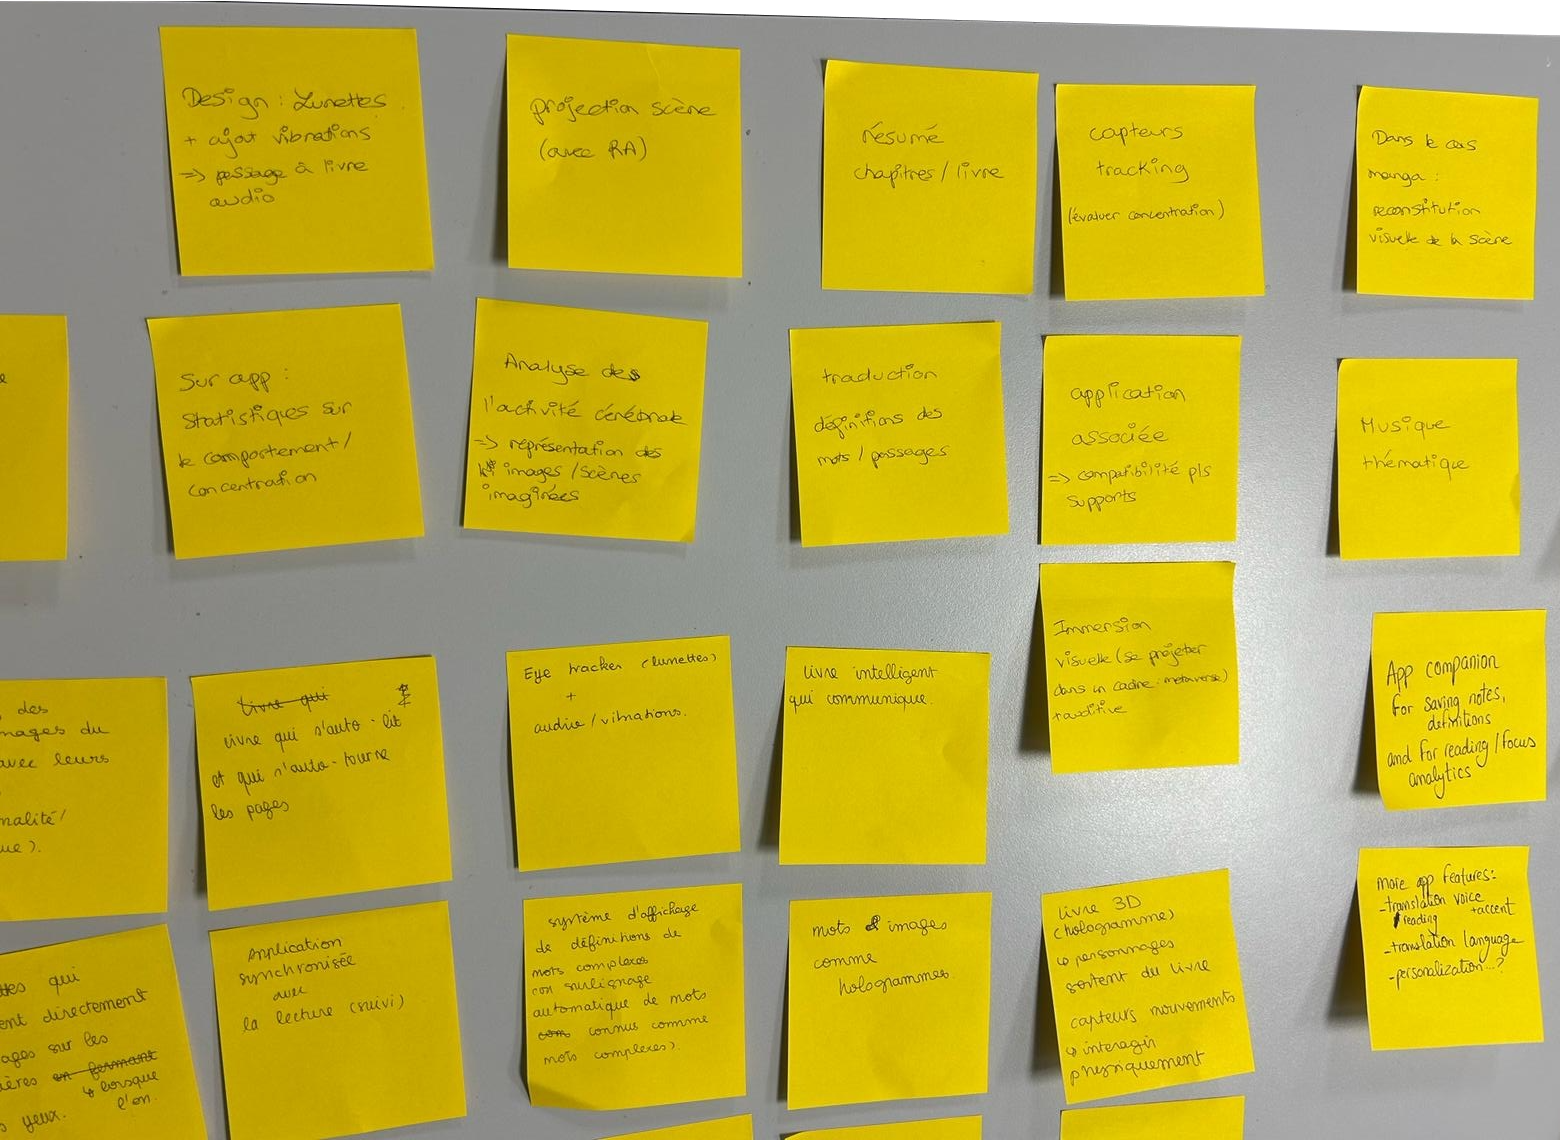 Design : Lunettes
+ ajout vibrations
=> passage à livre
audio
projection scène
(avec RA)
résumé
chapitres / livre
capteurs
tracking
(évaluer concentration)
Dans le cas
manga :
reconstitution
visuelle de la scène
Sur app :
Statistiques sur
le comportement /
concentration
Analyse des
l'activité cérébrale
=> représentation des
images / scènes
imaginées
traduction
définitions des
mots / passages
application
associée
=> compatibilité pls
supports
Musique
thématique
Immersion
visuelle (se projeter
dans un cadre : metaverse)
+ auditive
des
mages du
avec leurs
nalité /
ue).
Livre qui
livre qui s'auto-lit
et qui s'auto-tourne
les pages
Eye tracker (lunettes)
+
audio / vibrations.
livre intelligent
qui communique.
App companion
for saving notes,
definitions
and for reading / focus
analytics
ttes qui
ent directement
ages sur les
ières en fermant
↳ lorsque
yeux. l'on.
Application
synchronisée
avec
la lecture (suivi)
système d'affichage
de définitions de
mots complexes
(on surlignage
automatique de mots
connus comme
mots complexes).
mots & images
comme
hologrammes.
livre 3D
(hologramme)
↳ personnages
sortent du livre
capteurs mouvements
↳ interagir
physiquement
More app features:
- translation voice
reading +accent
- translation language
- personalization...?